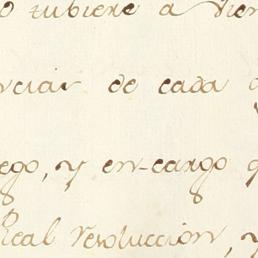 o tubiere a vien
nciar de cada
ego, y en-cargo q
Real resoluccion, y